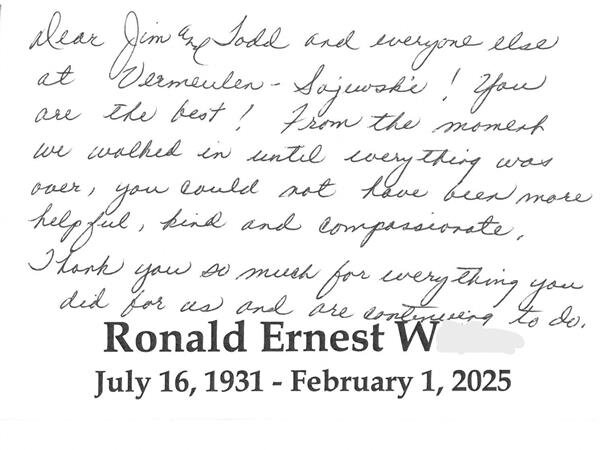 Dear Jim and Todd and everyone else
at Vermeulen-Sajewski! You
are the best! From the moment
we walked in until everything was
over, you could not have been more
helpful, kind and compassionate.
Thank you so much for everything you
did for us and are continuing to do.
Ronald Ernest W
July 16, 1931 - February 1, 2025